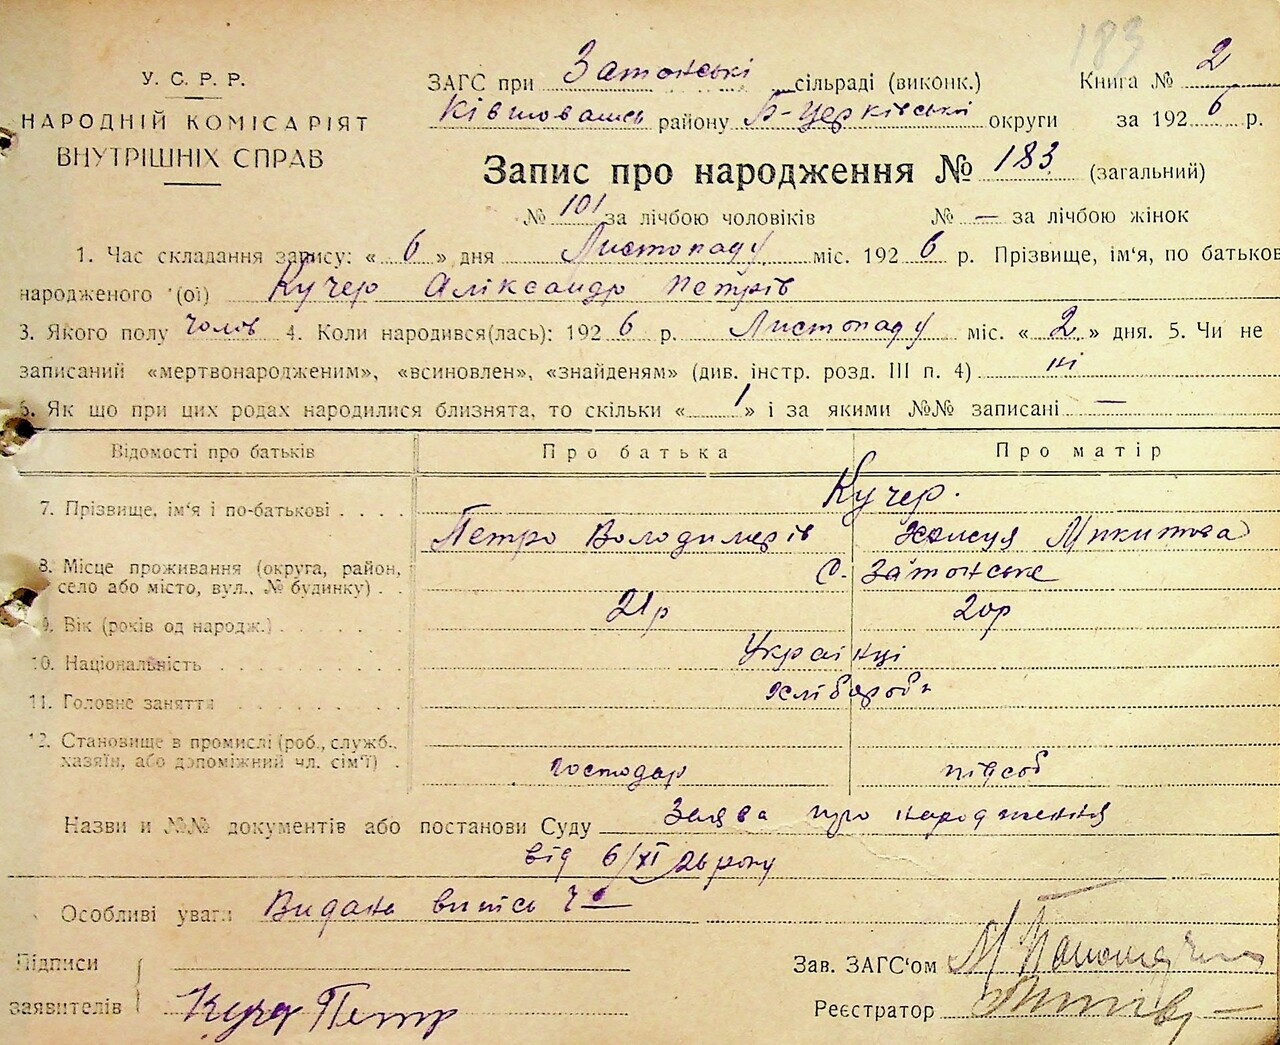 183
У. С. Р. Р.
НАРОДНІЙ КОМІСАРІЯТ
ВНУТРІШНІХ СПРАВ
ЗАГС при Затонські сільраді (виконк.) Книга № 2
району Б-Церківської округи за 1926 р.
Запис про народження № 183 (загальний)
№ 101 за лічбою чоловіків № — за лічбою жінок
1. Час складання запису: « 6 » дня Листопаду міс. 1926 р. Прізвище, ім'я, по батьков
народженого (ої) Кучер Аліксандр Петрів
3. Якого полу Чолов 4. Коли народився(лась): 1926 р. Листопаду міс. « 2 » дня. 5. Чи не
записаний «мертвонародженим», «всиновлен», «знайденям» (див. інстр. розд. III п. 4) ні
6. Як що при цих родах народилися близнята, то скільки « 1 » і за якими №№ записані —
Відомості про батьків Про батька Про матір
7. Прізвище, ім'я і по-батькові Кучер.
Петро Володимерів Микитова
8. Місце проживання (округа, район,
село або місто, вул., № будинку) с. Затонське
9. Вік (років од народж.) 21р 20р
10. Національність Українці
11. Головне заняття Хлібороби
12. Становище в промислі (роб., служб.,
хазяїн, або допоміжний чл. сім'ї) господар підсоб
Назви и №№ документів або постанови Суду Заява про народження
від 6/XI 26 року
Особливі уваги Видань випись
Підписи
заявителів Кучер Петр
Зав. ЗАГС'ом
Реєстратор